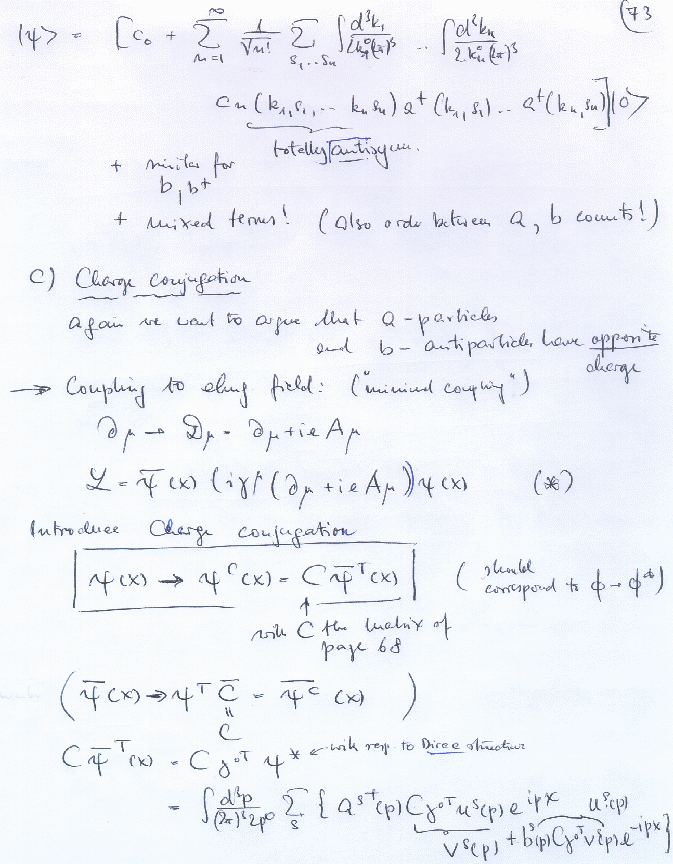 73
|ψ> = [c₀ + Σ_{n=1}^{∞} 1/√n! Σ_{s₁..sₙ} ∫ d³k₁/2k₁⁰(2π)³ .. ∫ d³kₙ/2kₙ⁰(2π)³
cₙ(k₁,s₁,.. kₙsₙ) a⁺(k₁,s₁).. a⁺(kₙ,sₙ)]|0>
totally antisym.
+ similar for
b, b⁺
+ mixed terms! (Also order between a, b counts!)
C) Charge conjugation
again we want to argue that a-particles
and b-antiparticles have opposite
charge
→ Coupling to elmg field: ("minimal coupling")
∂μ → Dμ = ∂μ + ieAμ
ℒ = ψ̄(x) (iγ^μ(∂μ + ieAμ))ψ(x) (*)
Introduce Charge conjugation
ψ(x) → ψ^C(x) = Cψ̄^T(x) (should
correspond to ϕ→ϕ*)
with C the matrix of
page 68
(ψ̄(x) → ψ^T C̄ = ψ̄^C(x))
=
C
Cψ̄^T(x) = Cγ^{0T} ψ* ← with resp to Dirac structure
= ∫ d³p/(2π)³2p⁰ Σ_s { a^{s+}(p) Cγ^{0T}u^s(p) e^{ipx} u^s(p)
v^s(p) + b^s(p)Cγ^{0T}v^s(p)e^{-ipx}}